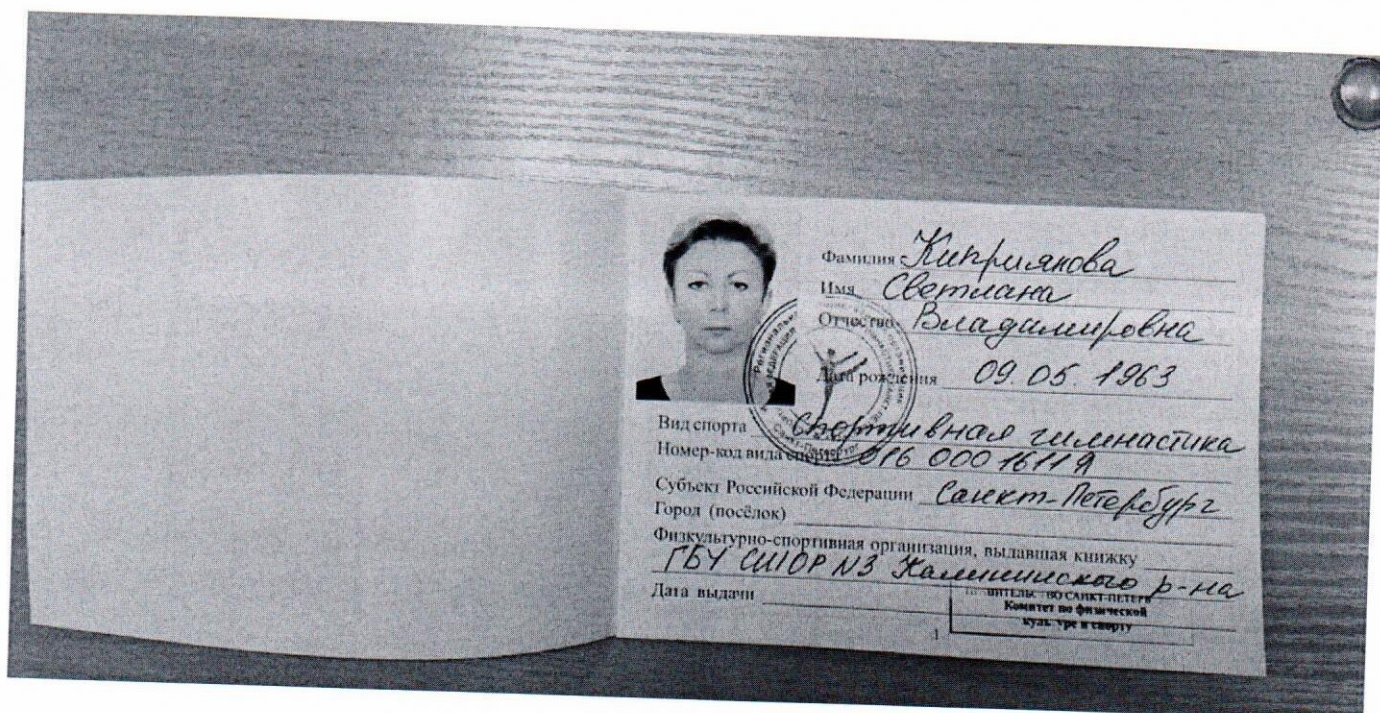 Фамилия Киприянова
Имя Светлана
Отчество Владимировна
Дата рождения 09.05.1963
Вид спорта Спортивная гимнастика
Номер-код вида спорта 016 000 1611Я
Субъект Российской Федерации Санкт-Петербург
Город (посёлок)
Физкультурно-спортивная организация, выдавшая книжку
ГБУ СШОР №3 Калининского р-на
Дата выдачи
Комитет по физической
культуре и спорту
1